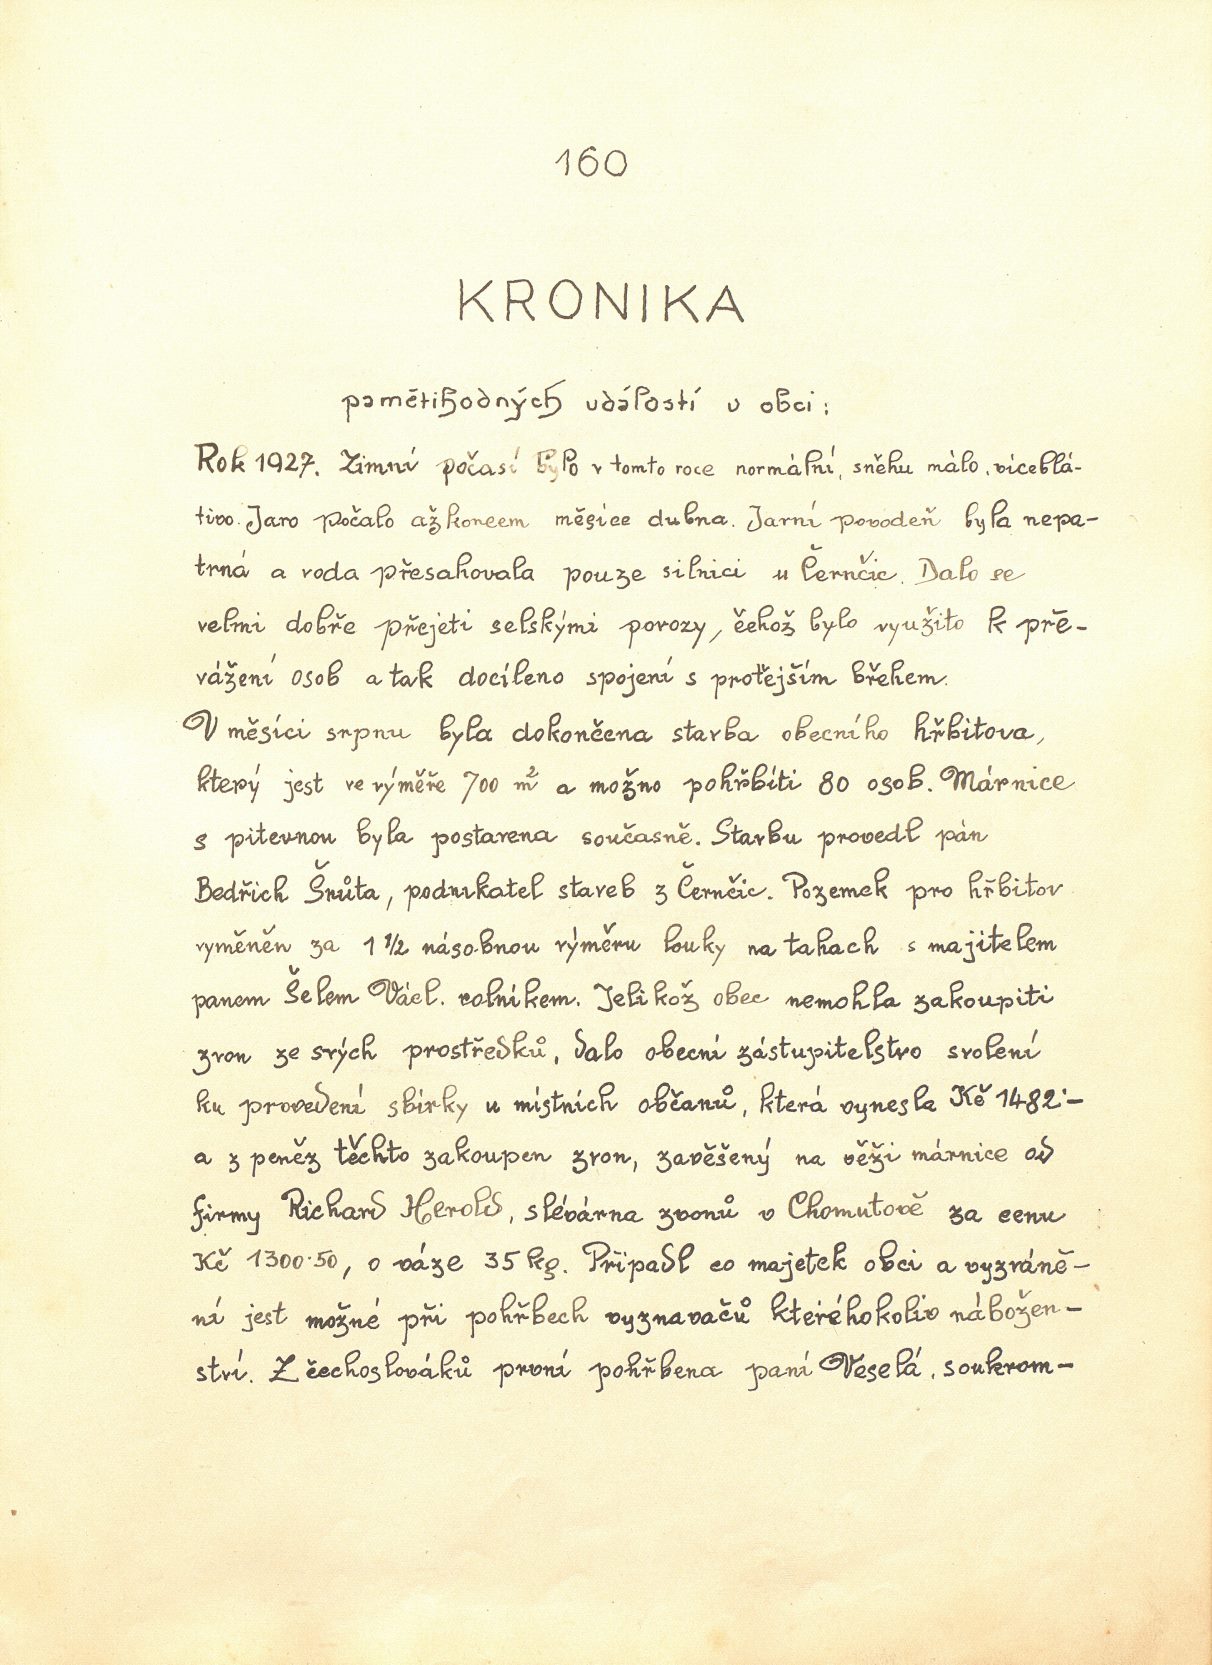 160
KRONIKA
pamětihodných událostí v obci:
Rok 1927. Zimní počasí bylo v tomto roce normální, sněhu málo, víceblá-
tivo. Jaro počalo až koncem měsíce dubna. Jarní povodeň byla nepa-
trná a voda přesahovala pouze silnici u Černčic. Dalo se
velmi dobře přejeti selskými povozy, čehož bylo využito k pře-
vážení osob a tak docíleno spojení s protějším břehem.
V měsíci srpnu byla dokončena stavba obecního hřbitova,
který jest ve výměře 700 m² a možno pohřbíti 80 osob. Márnice
s pitevnou byla postavena současně. Stavbu provedl pán
Bedřich Šnůta, podnikatel staveb z Černčic. Pozemek pro hřbitov
vyměněn za 1 1/2 násobnou výměru louky na tahach s majitelem
panem Šelem Václ. rolníkem. Jelikož obec nemohla zakoupiti
zvon ze svých prostředků, dalo obecní zástupitelstvo svolení
ku provedení sbírky u místních občanů, která vynesla Kč 1482·-
a z peněz těchto zakoupen zvon, zavěšený na věži márnice od
firmy Richard Herold, slévárna zvonů v Chomutově za cenu
Kč 1300·50, o váze 35 kg. Připadl co majetek obci a vyzváně-
ní jest možné při pohřbech vyznavačů kteréhokoliv nábožen-
ství. Z čechoslováků první pohřbena paní Veselá, soukrom-